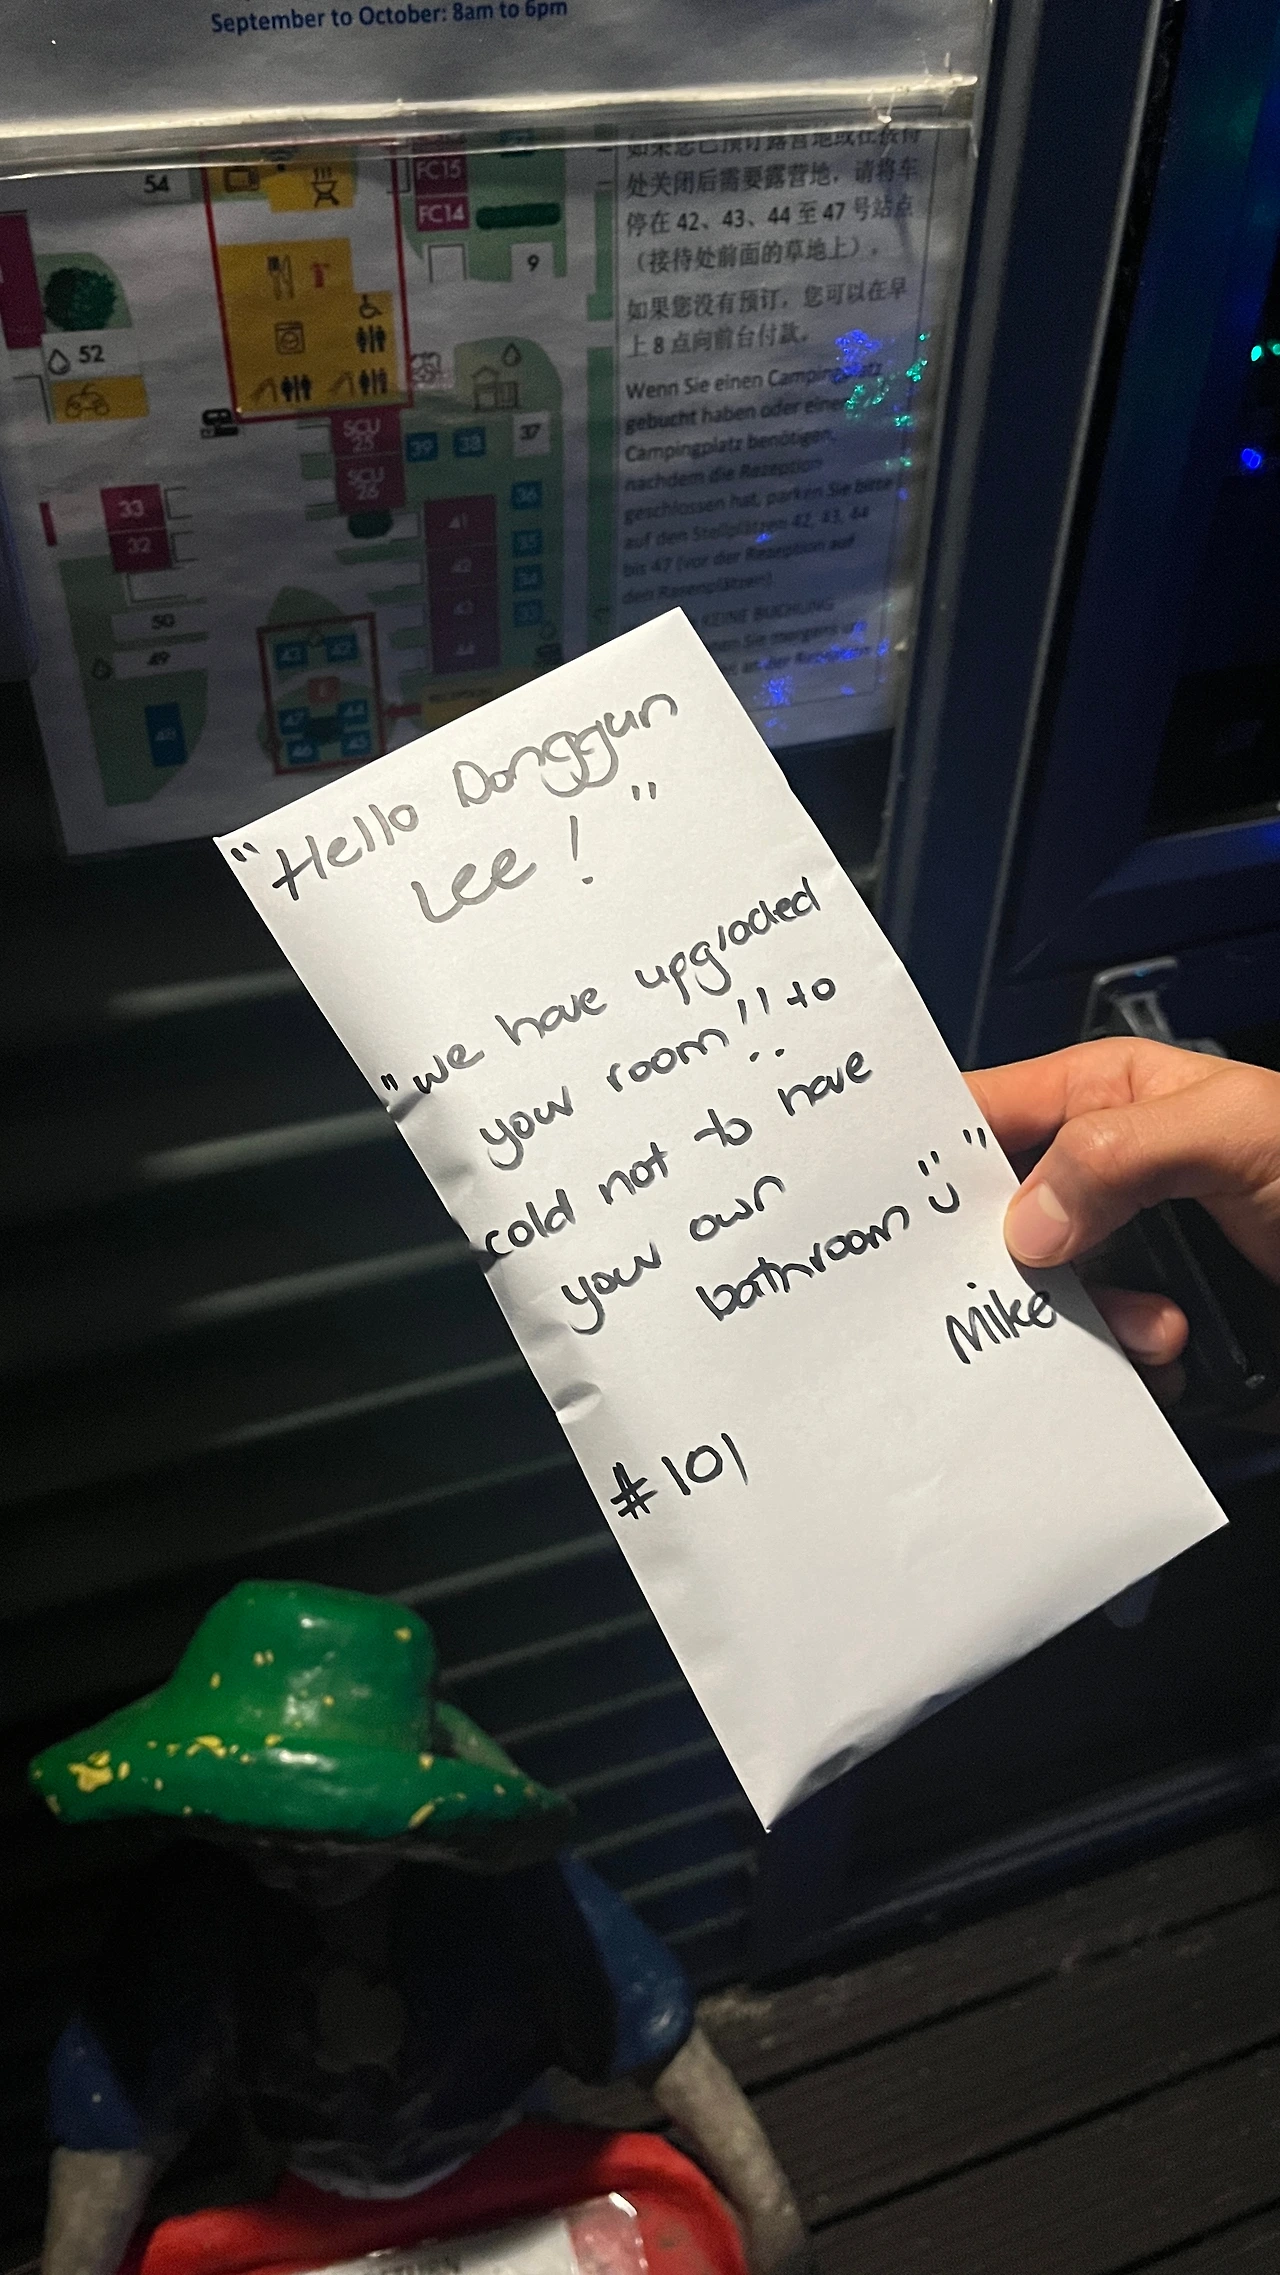 September to October: 8am to 6pm
54
FC15
FC14
9
52
SCU
25
SCU
26
39
38
37
36
35
34
33
33
32
41
42
43
44
50
49
48
43
42
47
44
46
45
处关闭后需要露营地，请将车
停在 42、43、44 至 47 号站点
（接待处前面的草地上）。
如果您没有预订，您可以在早
上 8 点向前台付款。
Wenn Sie einen Campingplatz
gebucht haben oder einen
Campingplatz benötigen,
nachdem die Rezeption
geschlossen hat, parken Sie bitte
auf den Stellplätzen 42, 43, 44
bis 47 (vor der Rezeption auf
den Rasenplätzen)
KEINE BUCHUNG
"Hello Donggun
Lee! "
"we have upgraded
your room!! to
cold not to have
your own
bathroom ü"
Mike
#101